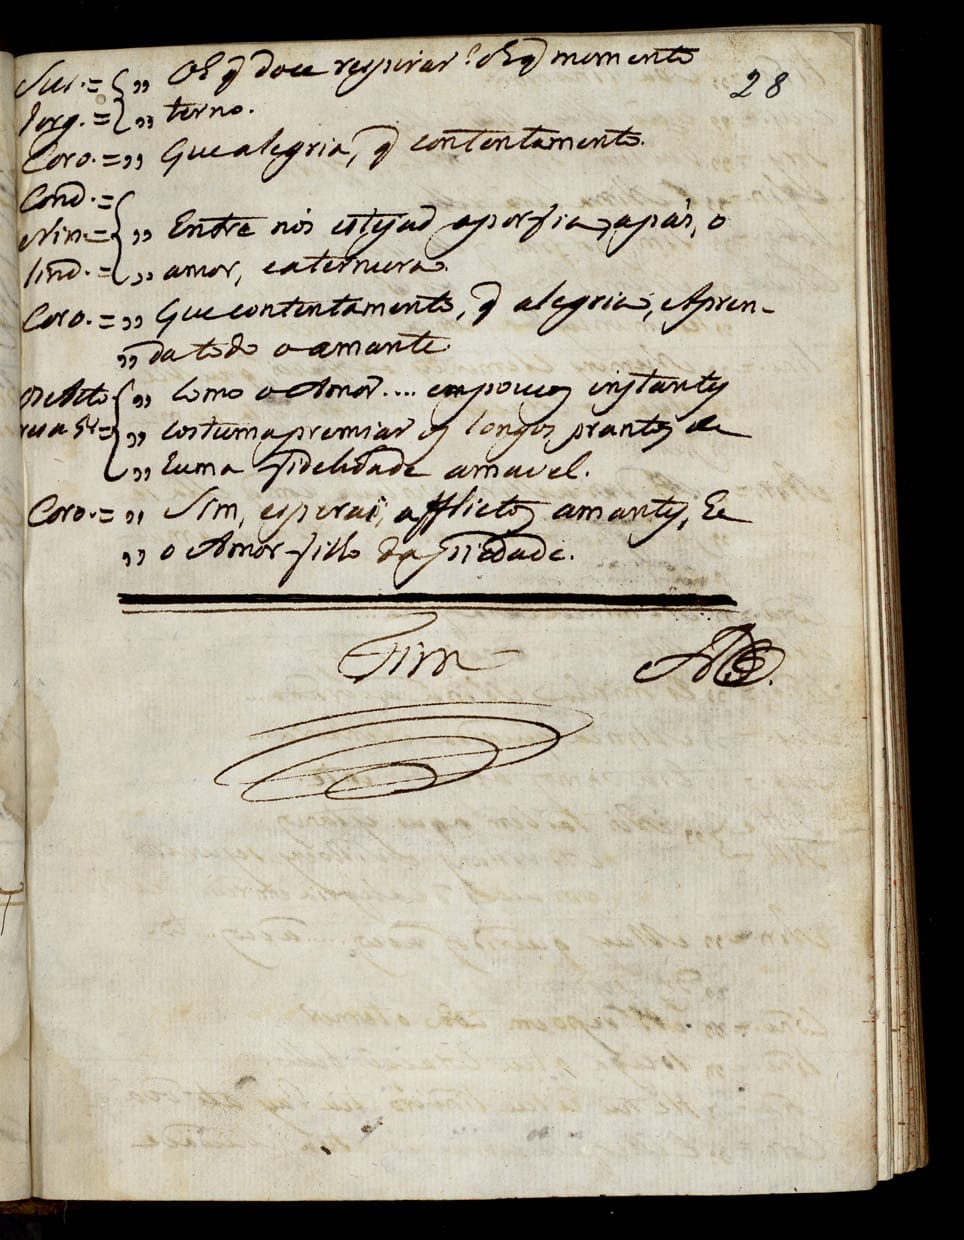 28
Suz. = { ,, Oh q̃ doce respirar! Oh q̃ momento
Jorg. = { ,, terno.
Coro. = ,, Que alegria, q̃ contentamento.
Cond. =
Nin = { ,, Entre nós estejaõ aporfia, apás, o
lind. = ,, amor, eaternura.
Coro. = ,, Que contentamento, q̃ alegria, Apren-
,, da todo o amante
{ ,, Como o Amor.... empoucos instantes
,, costuma premiar os longos prantos de
,, huma fidelidade amavel.
Coro. = ,, Sim, esperai, afflictos amantes, he
,, o Amor filho da piedade.
Fim